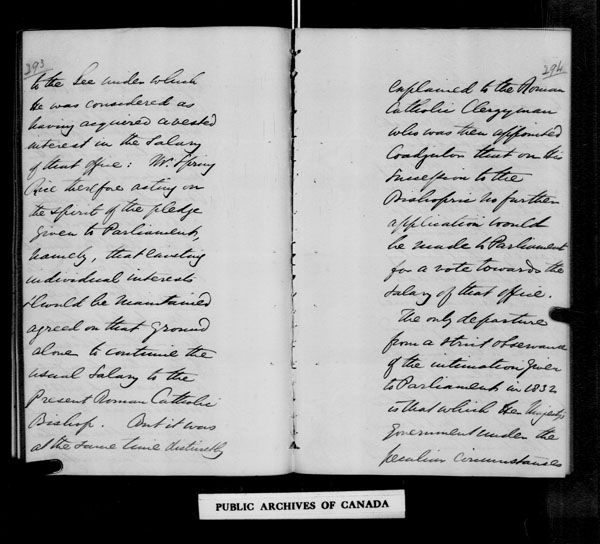 293
to the See under which
he was considered as
having acquired a vested
interest in the Salary
of that office: Mr. Spring
Rice therefore acting on
the spirit of the pledge
given to Parliament,
namely, that existing
individual interests
should be maintained
agreed on that ground
alone to continue the
usual Salary to the
Present Roman Catholic
Bishop. But it was
at the same time distinctly
294
explained to the Roman
Catholic Clergyman
who was then appointed
Coadjutor that on his
Succession to the
Bishopric no further
application would
be made to Parliament
for a vote towards the
Salary of that office.
The only departure
from a strict observance
of the intimation given
to Parliament in 1832
is that which Her Majesty's
Government under the
peculiar circumstances
PUBLIC ARCHIVES OF CANADA